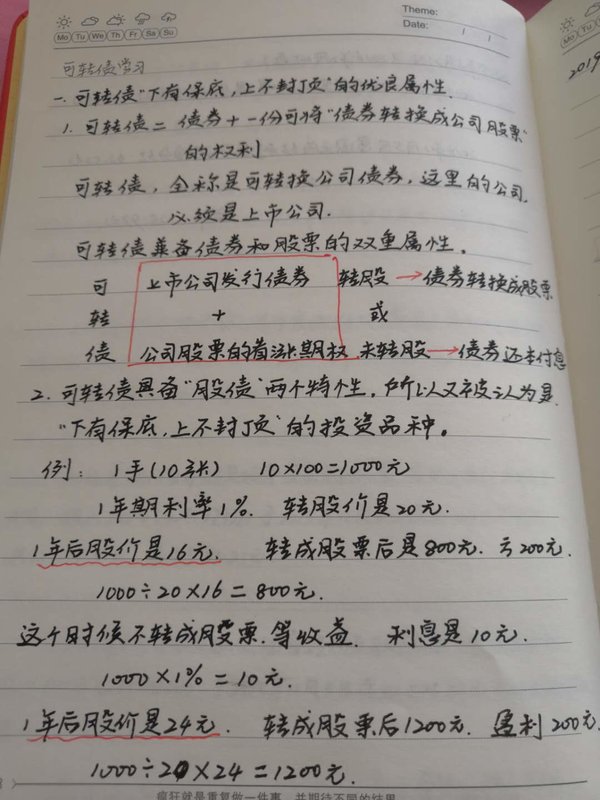 Theme:
Mo Tu We Th Fr Sa Su
Date: / /
可转债学习
2019
一.可转债"下有保底,上不封顶"的优良属性.
1.可转债=债券+一份可将"债券转换成公司股票"
的权利
可转债,全称是可转换公司债券,这里的公司
必须是上市公司.
可转债兼备债券和股票的双重属性。
可 上市公司发行债券 转股→债券转换成股票
转 + 或
债 公司股票的看涨期权 未转股→债券还本付息
2.可转债具备"股债"两个特性,所以又被认为是
"下有保底,上不封顶"的投资品种。
例:1手(10张) 10×100=1000元
1年期利率1%. 转股价是20元.
1年后股价是16元. 转成股票后是800元.亏200元.
1000÷20×16=800元.
这个时候不转成股票.等收益. 利息是10元.
1000×1%=10元.
1年后股价是24元. 转成股票后1200元. 盈利200元.
1000÷20×24=1200元.
疯狂就是重复做一件事,并期待不同的结果